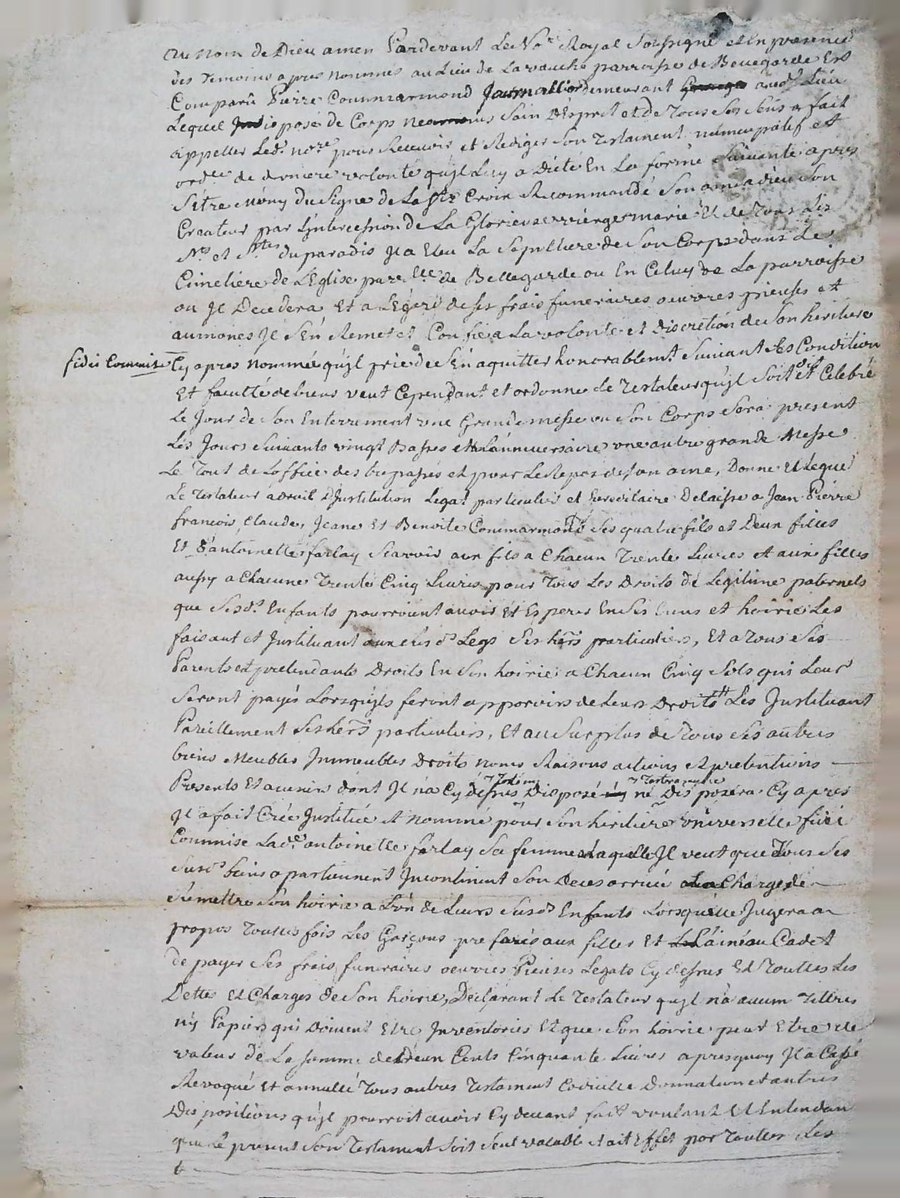 Au Nom de Dieu amen Pardevant Le No.re Royal Soussigné et en presence
Des Temoins apres nommés au Lieu de Lavauche parroisse de Bellegarde Est
Comparû Pierre Commarmond Journallier demeurant aud.t Lieu
Lequel de Corps Sain D'esprit et de Tous Ses Sens a fait
appeller Led. no.re pour Recevoir et Rediger Son Testament nuncupatif et
ord.re de derniere volonté qu'jl Luy a Dicté En La forme Suivante apres
S'être muny du Signe de La S.te Croix Recommandé Son ame a dieu Son
Createur par L'jntercession de La Glorieuse vierge marie Et de Tous Les
S.ts et S.tes du paradis Jl a Eleu La Sepulture de Son Corps dans Le
Cimetiere de L'Eglise par.elle de Bellegarde ou En Celuy de La parroisse
ou Jl Decedera Et a L'Egard de Ses frais funeraires oeuvres pieuses et
aumones Jl S'en Remet et Confie a La volonté et Discretion de Son heritiere
fidei Commise Cy apres nommée qu'jl prie de S'en aquitter honorablem.t Suivant Ses Condition
Et faculté de biens veut Cependant et ordonne Le Testateur qu'jl Soit Celebré
Le Jour de Son Enterrement une Grande messe ou Son Corps Sera present
Les Jours Suivants vingt Basses et a L'anniversaire une autre grande Messe
Le Tout de L'office des trepassés et pour Le repos de Son ame, Donne et Legue
Le Testateur a Droit D'Jnstitution Legat particulier et hereditaire Delaisse a Jean Pierre
francois, Claude, Jeane Et Benoite Commarmond Ses quatre fils et Deux filles
Et D'antoinette farlay Scavoir aux fils a Chacun Trente Livres Et aux filles
aussy a Chacune Trente Cinq Livres pour Tous Les Droits de Legitime paternels
que Sesd.ts Enfants pourroient avoir Et Esperer En Ses biens et hoirie Les
faisant et Jnstituant aux Susd.ts Legs Ses hers particuliers, Et a Tous Ses
Parents et pretendants Droits En Son hoirie a Chacun Cinq Sols qui Leur
Seront payés Lorsqu'jls feront apparoir de Leurs Droits Les Jnstituant
Pareillement Ses hers particuliers, Et au Surplus de Tous Ses autres
biens Meubles Jmmeubles Droits noms Raisons actions et pretentions
Presents Et avenir dont Jl n'a Cy dessus Disposé ny ne Disposera Cy apres
Jl a fait Créé Jnstitué et nommé pour Son heritiere universelle fidei
Commise Lad.e antoinette farlay Sa femme a Laquelle Jl veut que Tous Ses
Susd.ts biens apartiennent Jncontinent Son Deces arrivé a La Charge de
Remettre Son hoirie a L'un de Leurs Susd.ts Enfants Lorsqu'elle Jugera a
propos Toutes fois Les Garçons preferés aux filles Et L'ainé au Cadet
de payer Ses frais funeraires oeuvres Pieuses Legats Cy dessus Et Toutes Les
Dette et Charges de Son hoirie, Declarant Le Testateur qu'jl n'a aucun Tittres
n'y Papiers qui Doivent Etre Jnventoriés Et que Son hoirie peut Etre de
valeur de La Somme de Deux Cents Cinquante Livres apresquoy Jl a Cassé
Revoqué Et annullé Tous autres Testament Codicille Donnation et autres
Dispositions qu'jl pourroit avoir Cy devant fait voulant Et Entendan
que Le present Son Testament Soit Seul valable et ait Effet par Toutes Les